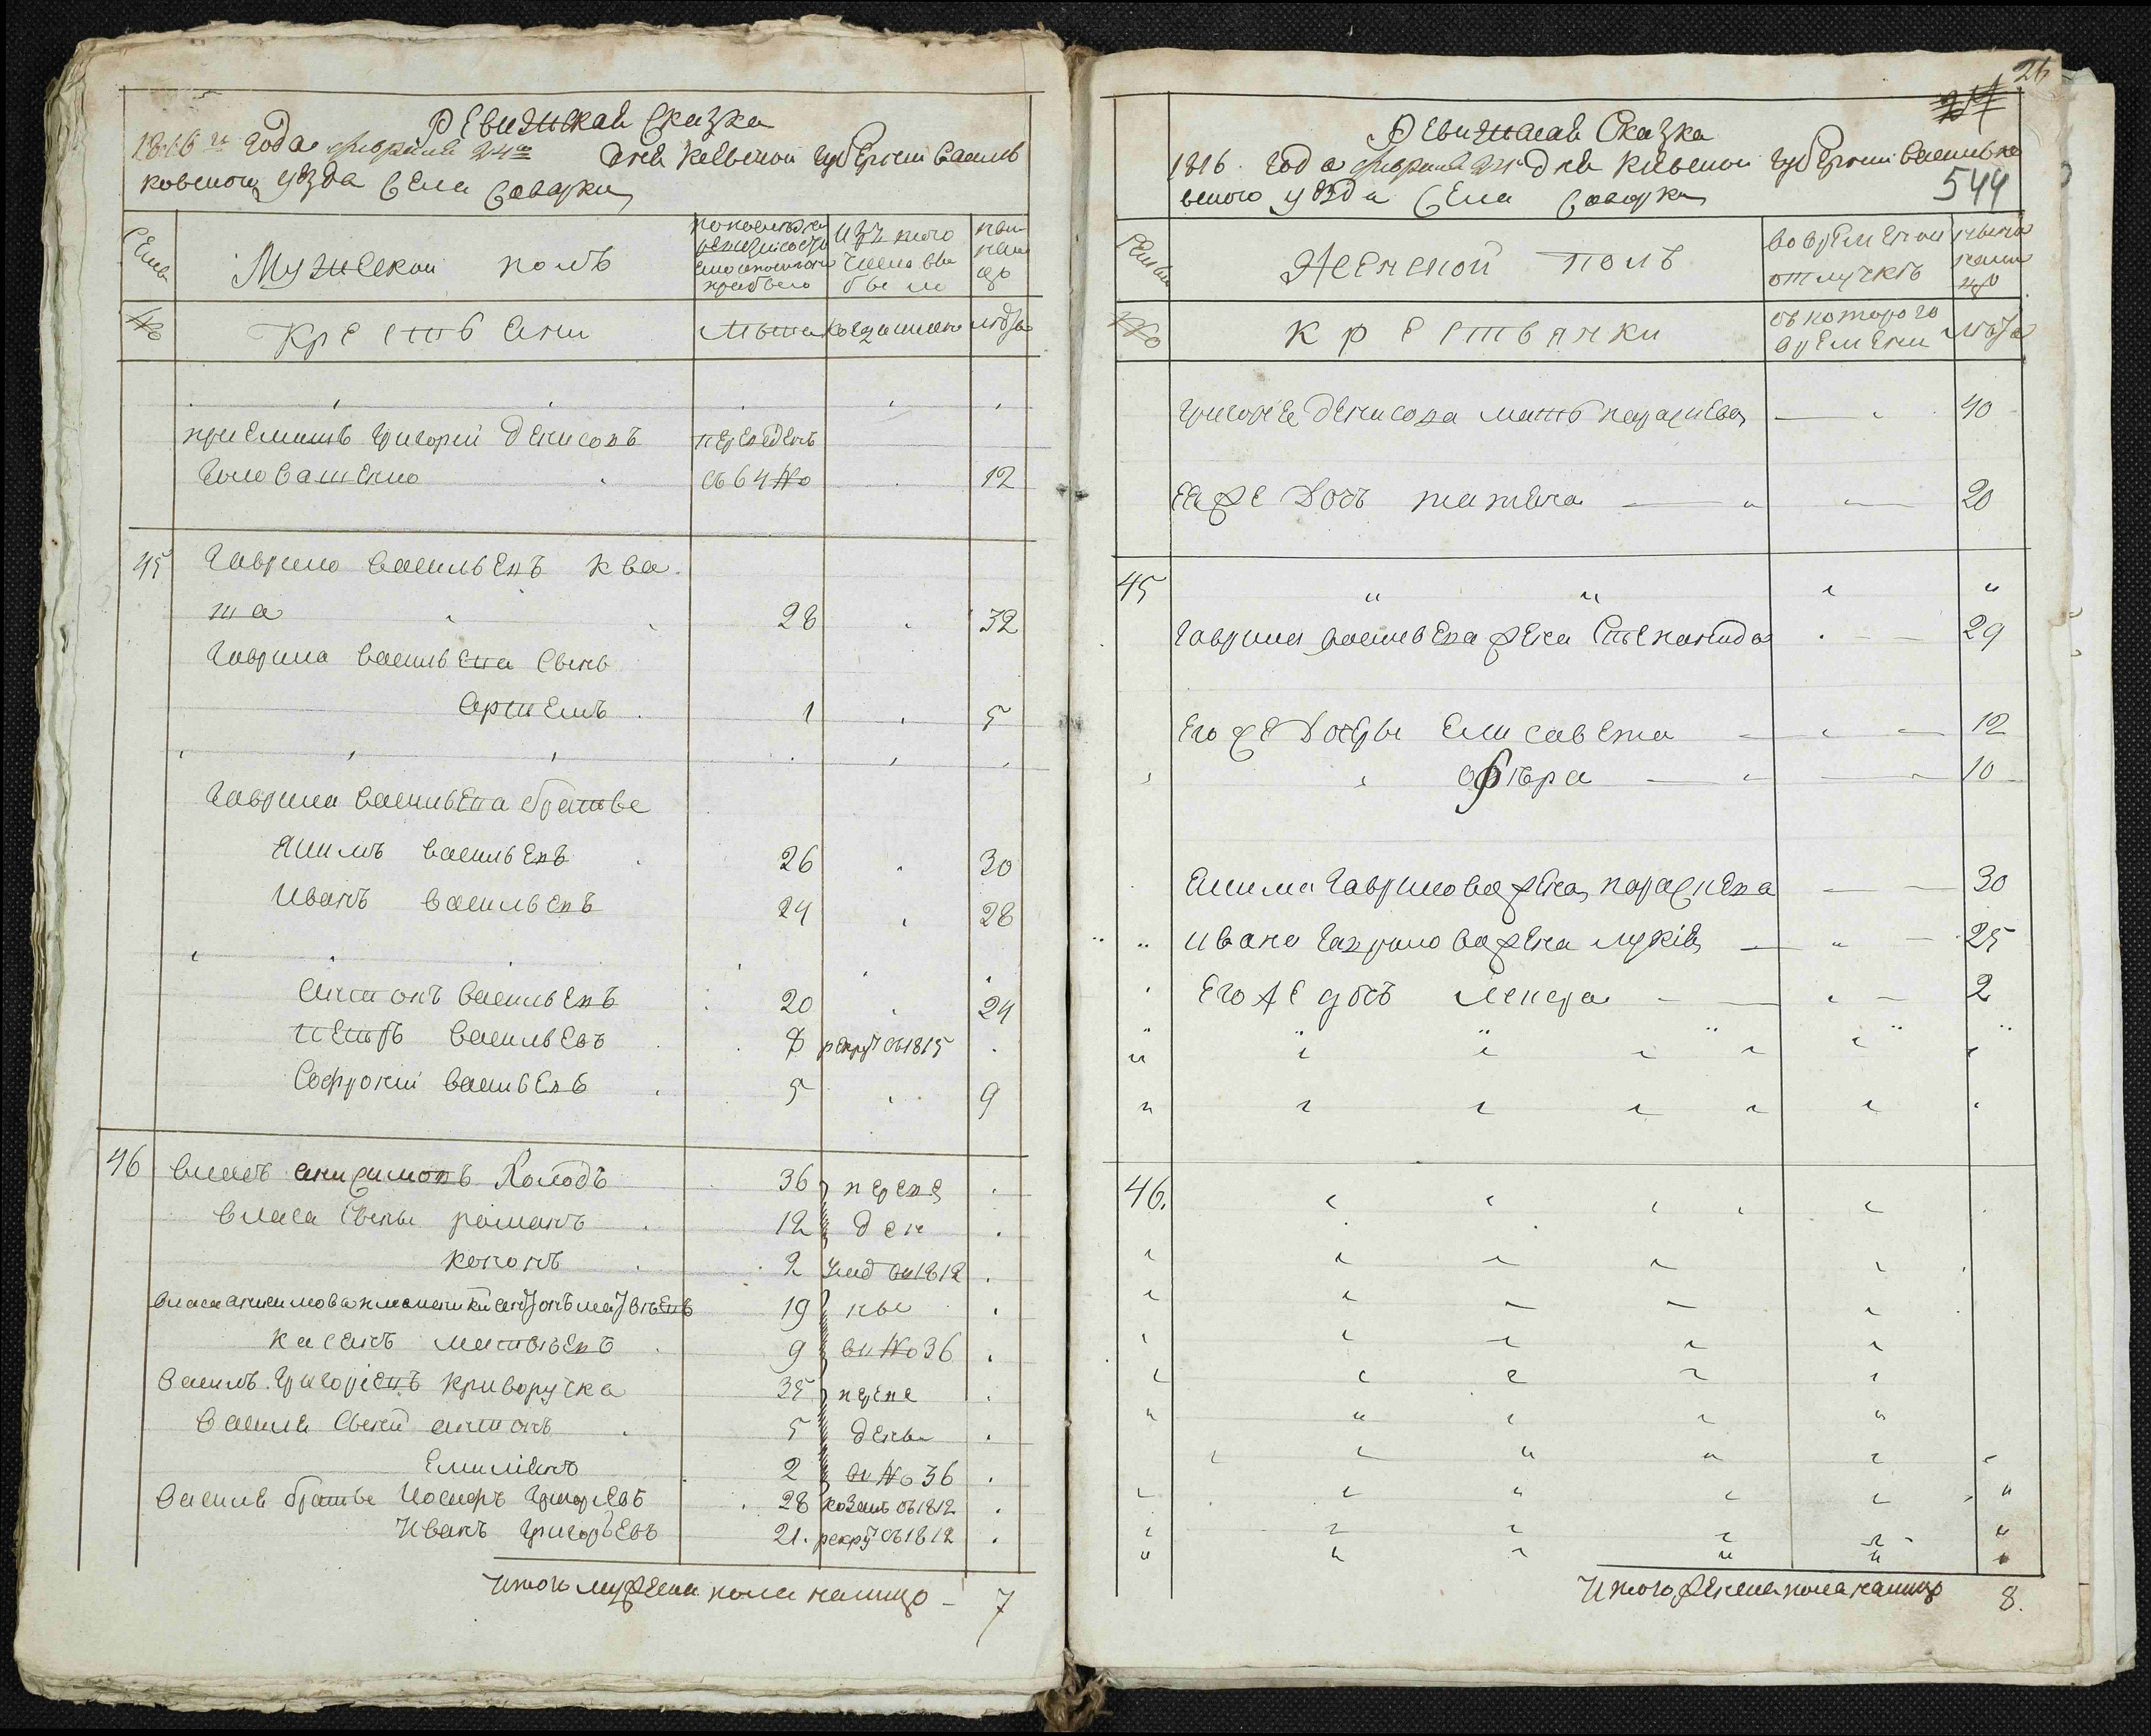 Ревижская Сказка
1816го года февраля 24го дня Киевской губернии василь
ковского уезда села Саварки
Семьи
Мужеский полъ
по последней ревизии состояло и после оной прибыло
Изъ того числа выбыло
ныне на лицо
№
Крестьяни
Лета
Когда именно
Лета
приемышъ григорий денисовъ
переведенъ
Головашенко
съ 64 №
12
45
Гаврило васильевъ ква
ша
28
32
Гаврила васильева сынъ
Артемъ
1
5
Гаврила васильева братья
Якимъ васильевъ
26
30
Иванъ васильевъ
24
28
Антонъ васильевъ
20
24
петръ васильевъ
8
рекрут въ 1815
Софроний васильевъ
5
9
46
власъ анисимовъ Колодъ
36
переве
власа сыны романъ
12
ден
кононъ
2
умер въ 1812
власа анисимова племянники антонъ матвеевъ
19
ны
касянъ матвеевъ
9
въ № 36
василь григориевъ криворучка
35
переве
василя сыны антонъ
5
дены
Емилиянъ
2
въ № 36
василя братья Иосифъ григориевъ
28
козакъ въ 1812
Иванъ григорьевъ
21
рекрут въ 1812
Итого мужеска пола налицо
7
26
24
Ревижская Сказка
1816. года февраля 24 дня Киевской губернии василько
вского уезда села Саварки
544
Семьи
Женской полъ
во временной отлучке
ныне на лицо
№
крестьянки
съ которого времени
Лета
григория денисова мать парасковия
40
Еяже дочь татяна
20
45
гаврила васильева жена Степанида
29
Егоже дочеры Елисавета
12
афиера
10
Якима гаврилова жена парасковея
30
ивана гаврилова жена лукия
25
Егоже дочъ
2
46.
Итого женска пола налицо
8.